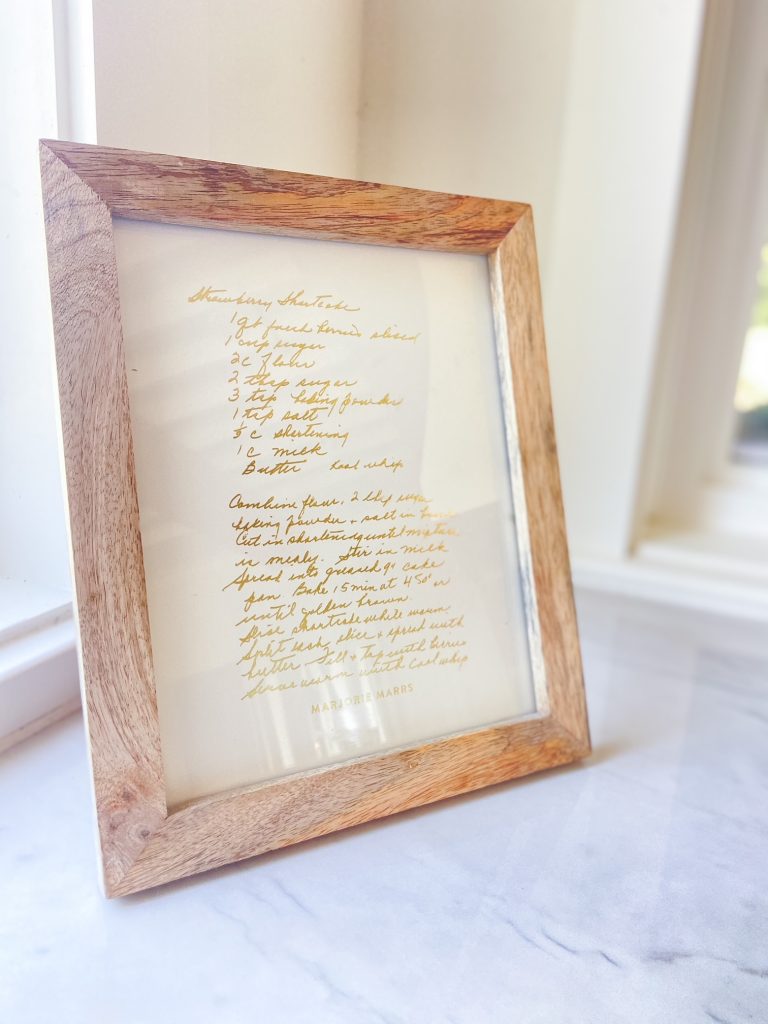 Strawberry Shortcake
1 qt fresh berries sliced
1 cup sugar
2 c flour
2 tbsp sugar
3 tsp baking powder
1 tsp salt
⅓ c shortening
1 c milk
Butter Cool whip
Combine flour, 2 tbsp sugar
baking powder + salt in bowl
Cut in shortening until mixture
is mealy. Stir in milk
Spread into greased 9" cake
pan. Bake 15 min at 450° or
until golden brown.
Slice shortcake while warm
Split each slice + spread with
butter Fill + top with berries
Serve warm with Cool whip
MARJORIE MARRS